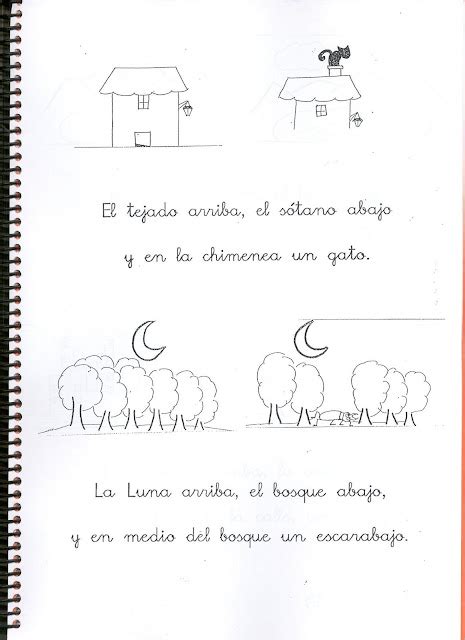 El tejado arriba, el sótano abajo
y en la chimenea un gato.
La Luna arriba, el bosque abajo,
y en medio del bosque un escarabajo.